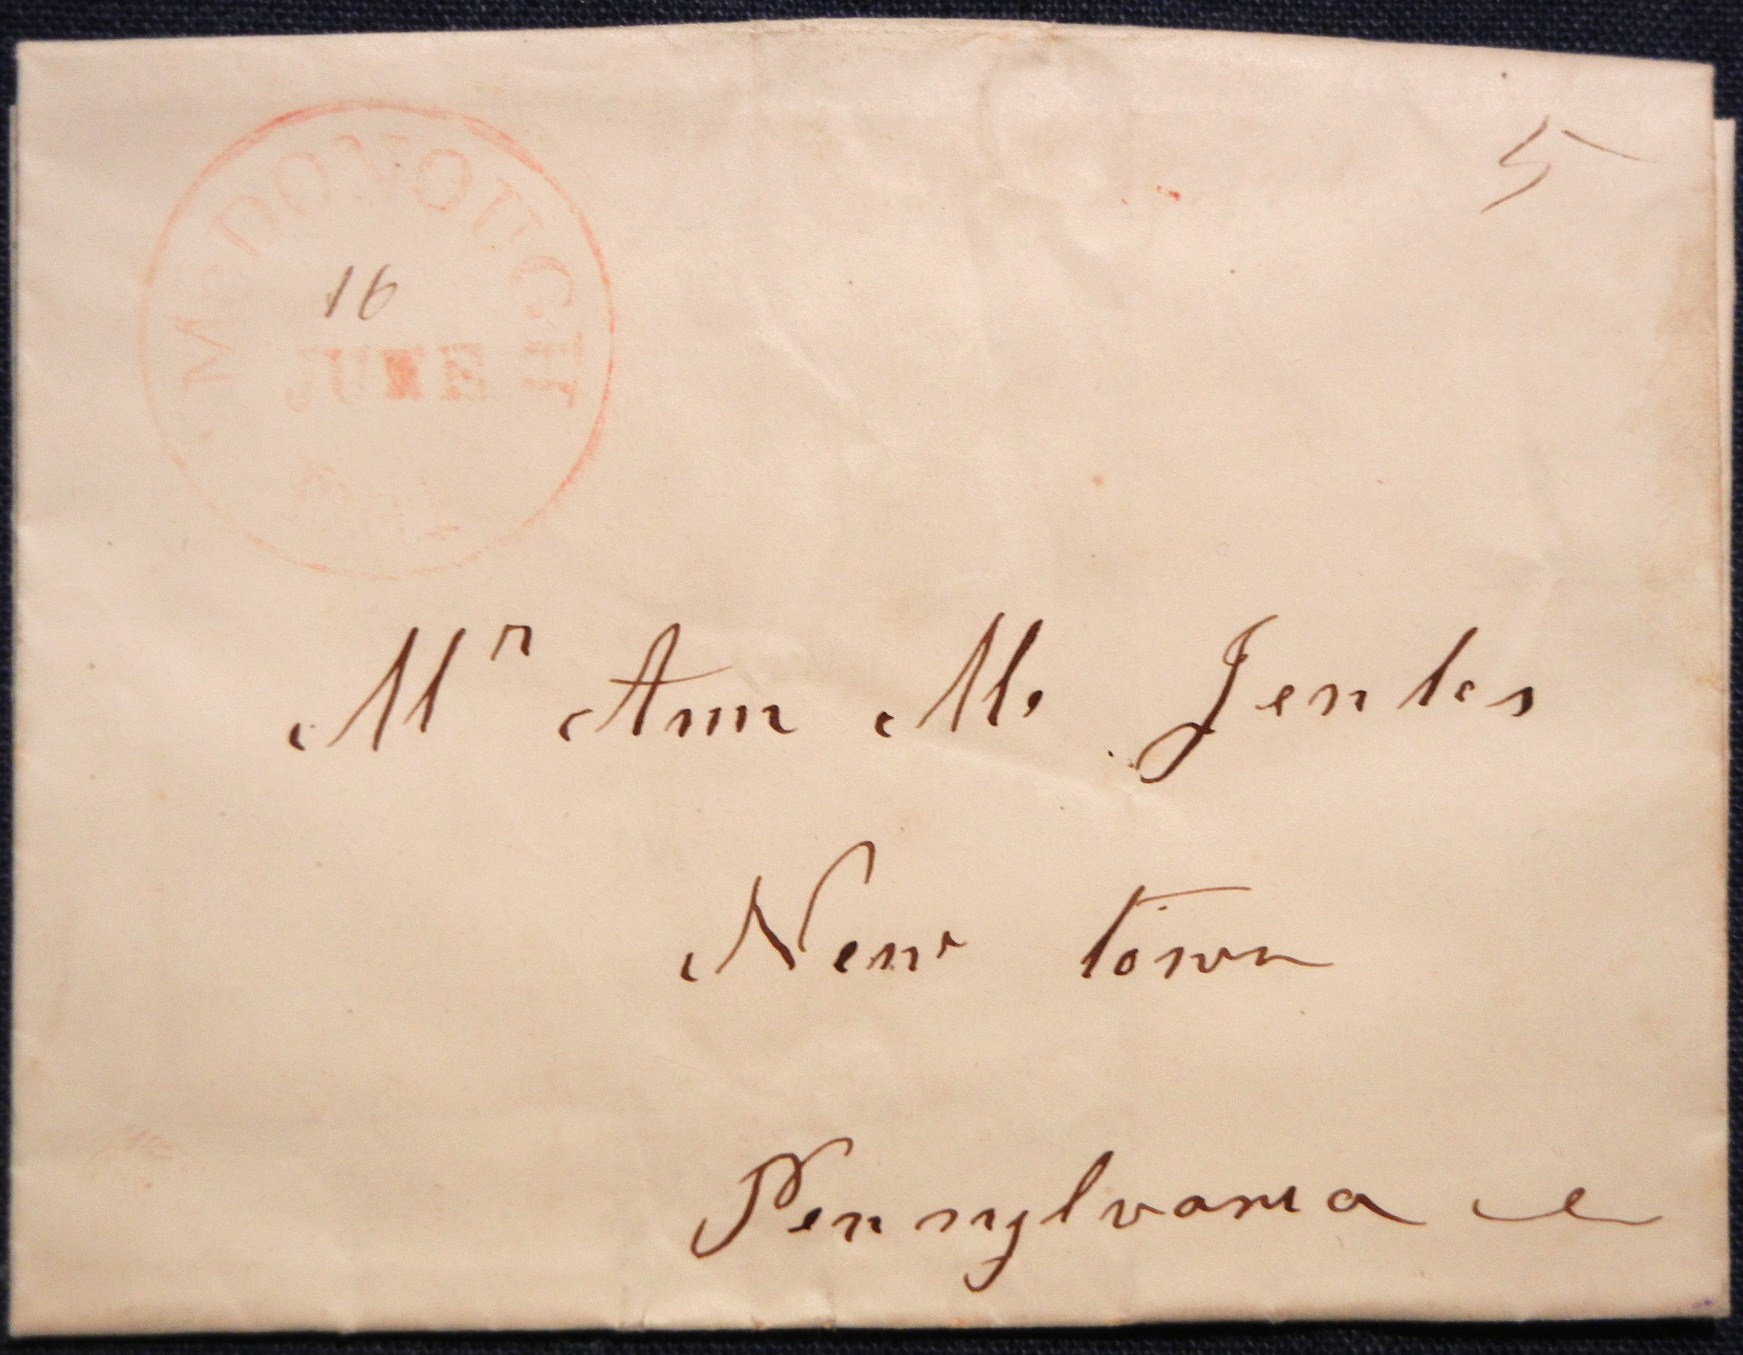 McDONOUGH
16
JUNE
5
Mr Ann M. Jenks
New town
Pennylvania